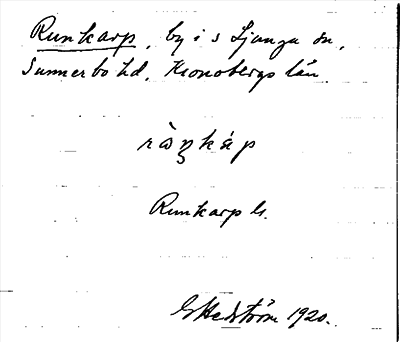 Runkarp, by i s Ljunga sn,
Sunnerbo hd, Kronobergs län
Runkarp
GHedström 1920.